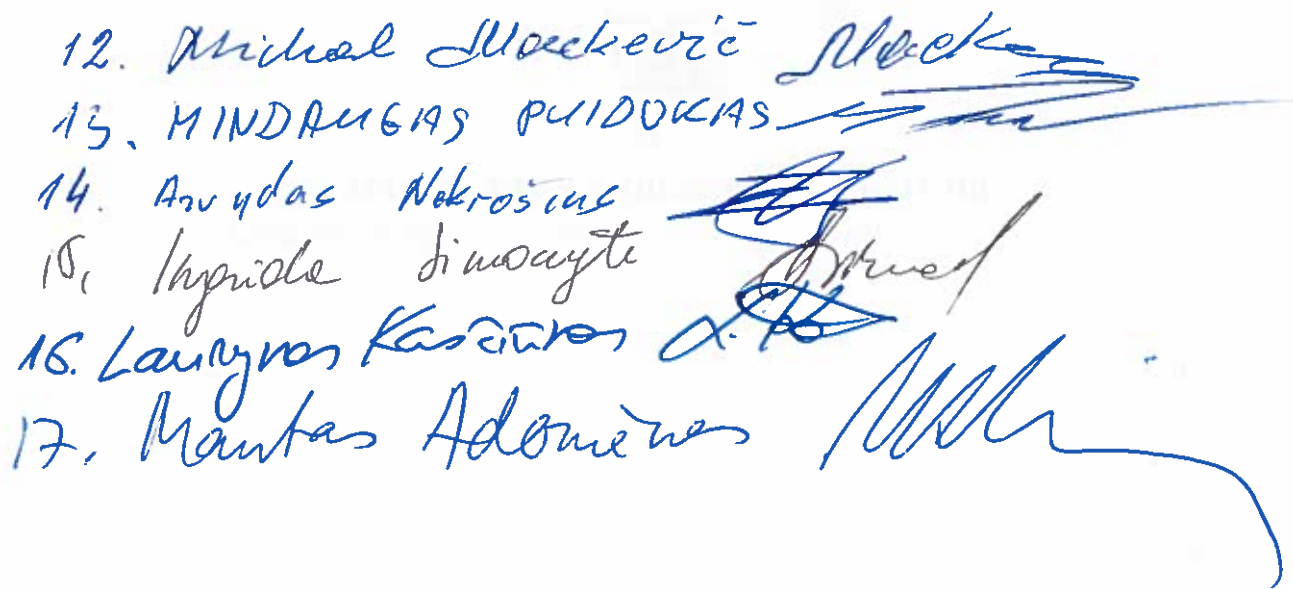 12. Michal Mackevič Mack
13. MINDAUGAS PUIDOKAS
14. Arvydas Nekrošius
15. Ingrida Šimonytė
16. Laurynas Kasčiūnas L. Ka
17. Mantas Adomėnas